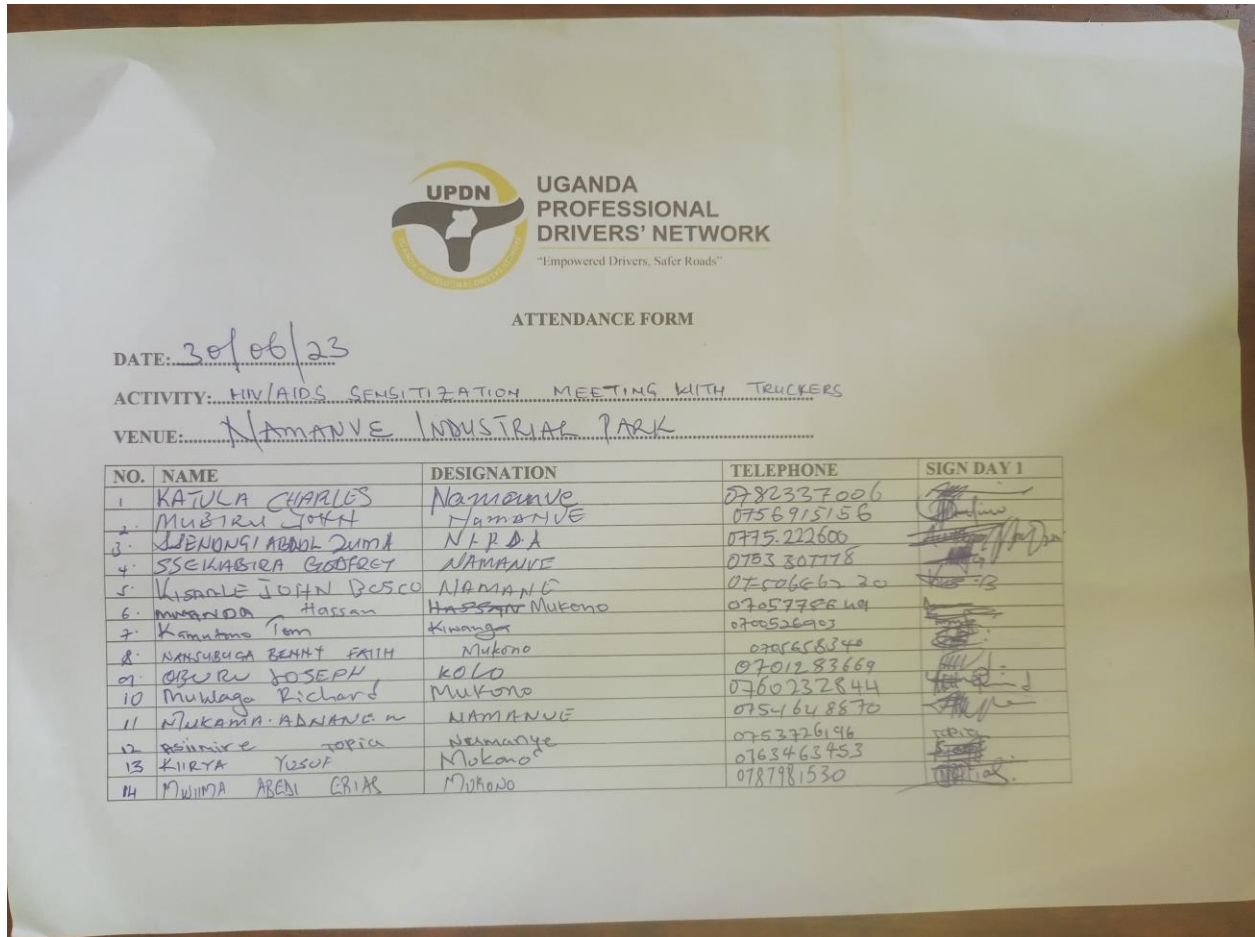 UPDN
UGANDA
PROFESSIONAL
DRIVERS' NETWORK
"Empowered Drivers, Safer Roads"
ATTENDANCE FORM
DATE: 30/06/23
ACTIVITY: HIV/AIDS SENSITIZATION MEETING WITH TRUCKERS
VENUE: NAMANVE INDUSTRIAL PARK
NO. NAME DESIGNATION TELEPHONE SIGN DAY 1
1 KATULA CHARLES Namanve 0782337006
2. MUBIRU JOHN NamaNVE 0756915156
3. SSENONGI ABDUL ZUMA 0775.222600
4. SSEKABIRA GODFREY NAMANVE 0753 307778
5. JOHN BOSCO NAMANE
6. Hassan Mukono
7. Tom 0700526903
8. NANSUBUGA BENNY FAITH Mukono 0705658340
9. OBURU JOSEPH KOLO 0701283669
10 Richard Mukono 0760232844
11 MUKAMA NAMANVE 0754648870
12 Asiimire TOPIA Namanve 0753726196
13 KIIRYA YUSUF Mukono 0763463453
14 MWIIMA ABEDI ERIAS MUKONO 0787981530